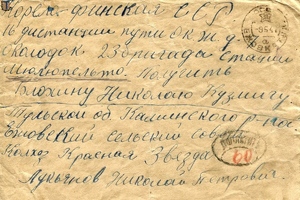 Корело-Финская ССР
16 дистанции пути ок ж. д.
околодок 23 бригада станции
Получить
Блохину Николаю Кузмичу
Тульской об Калининского р-на
сельский совет
Колхоз Красная Звезда
Лукьянов Николай Петрович